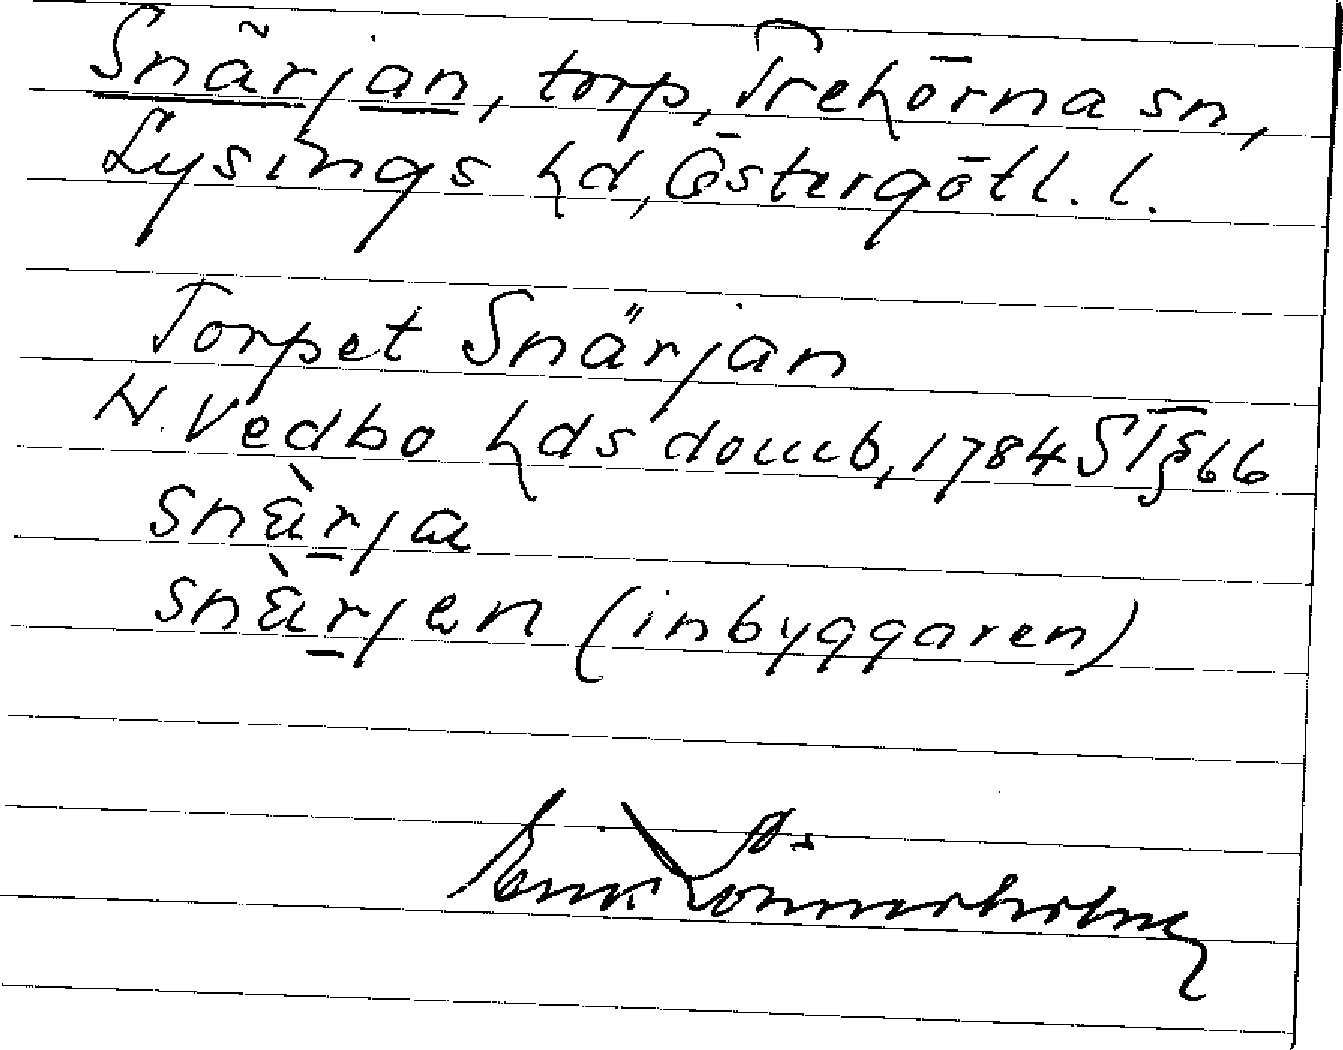 Snärjan, torp, Trehörna sn,
Lysings hd, Östergötl. l.
Torpet Snärjan
N. Vedbo hds domb, 1784 ST § 66
snä̀rja
snä̀rjen (inbyggaren)